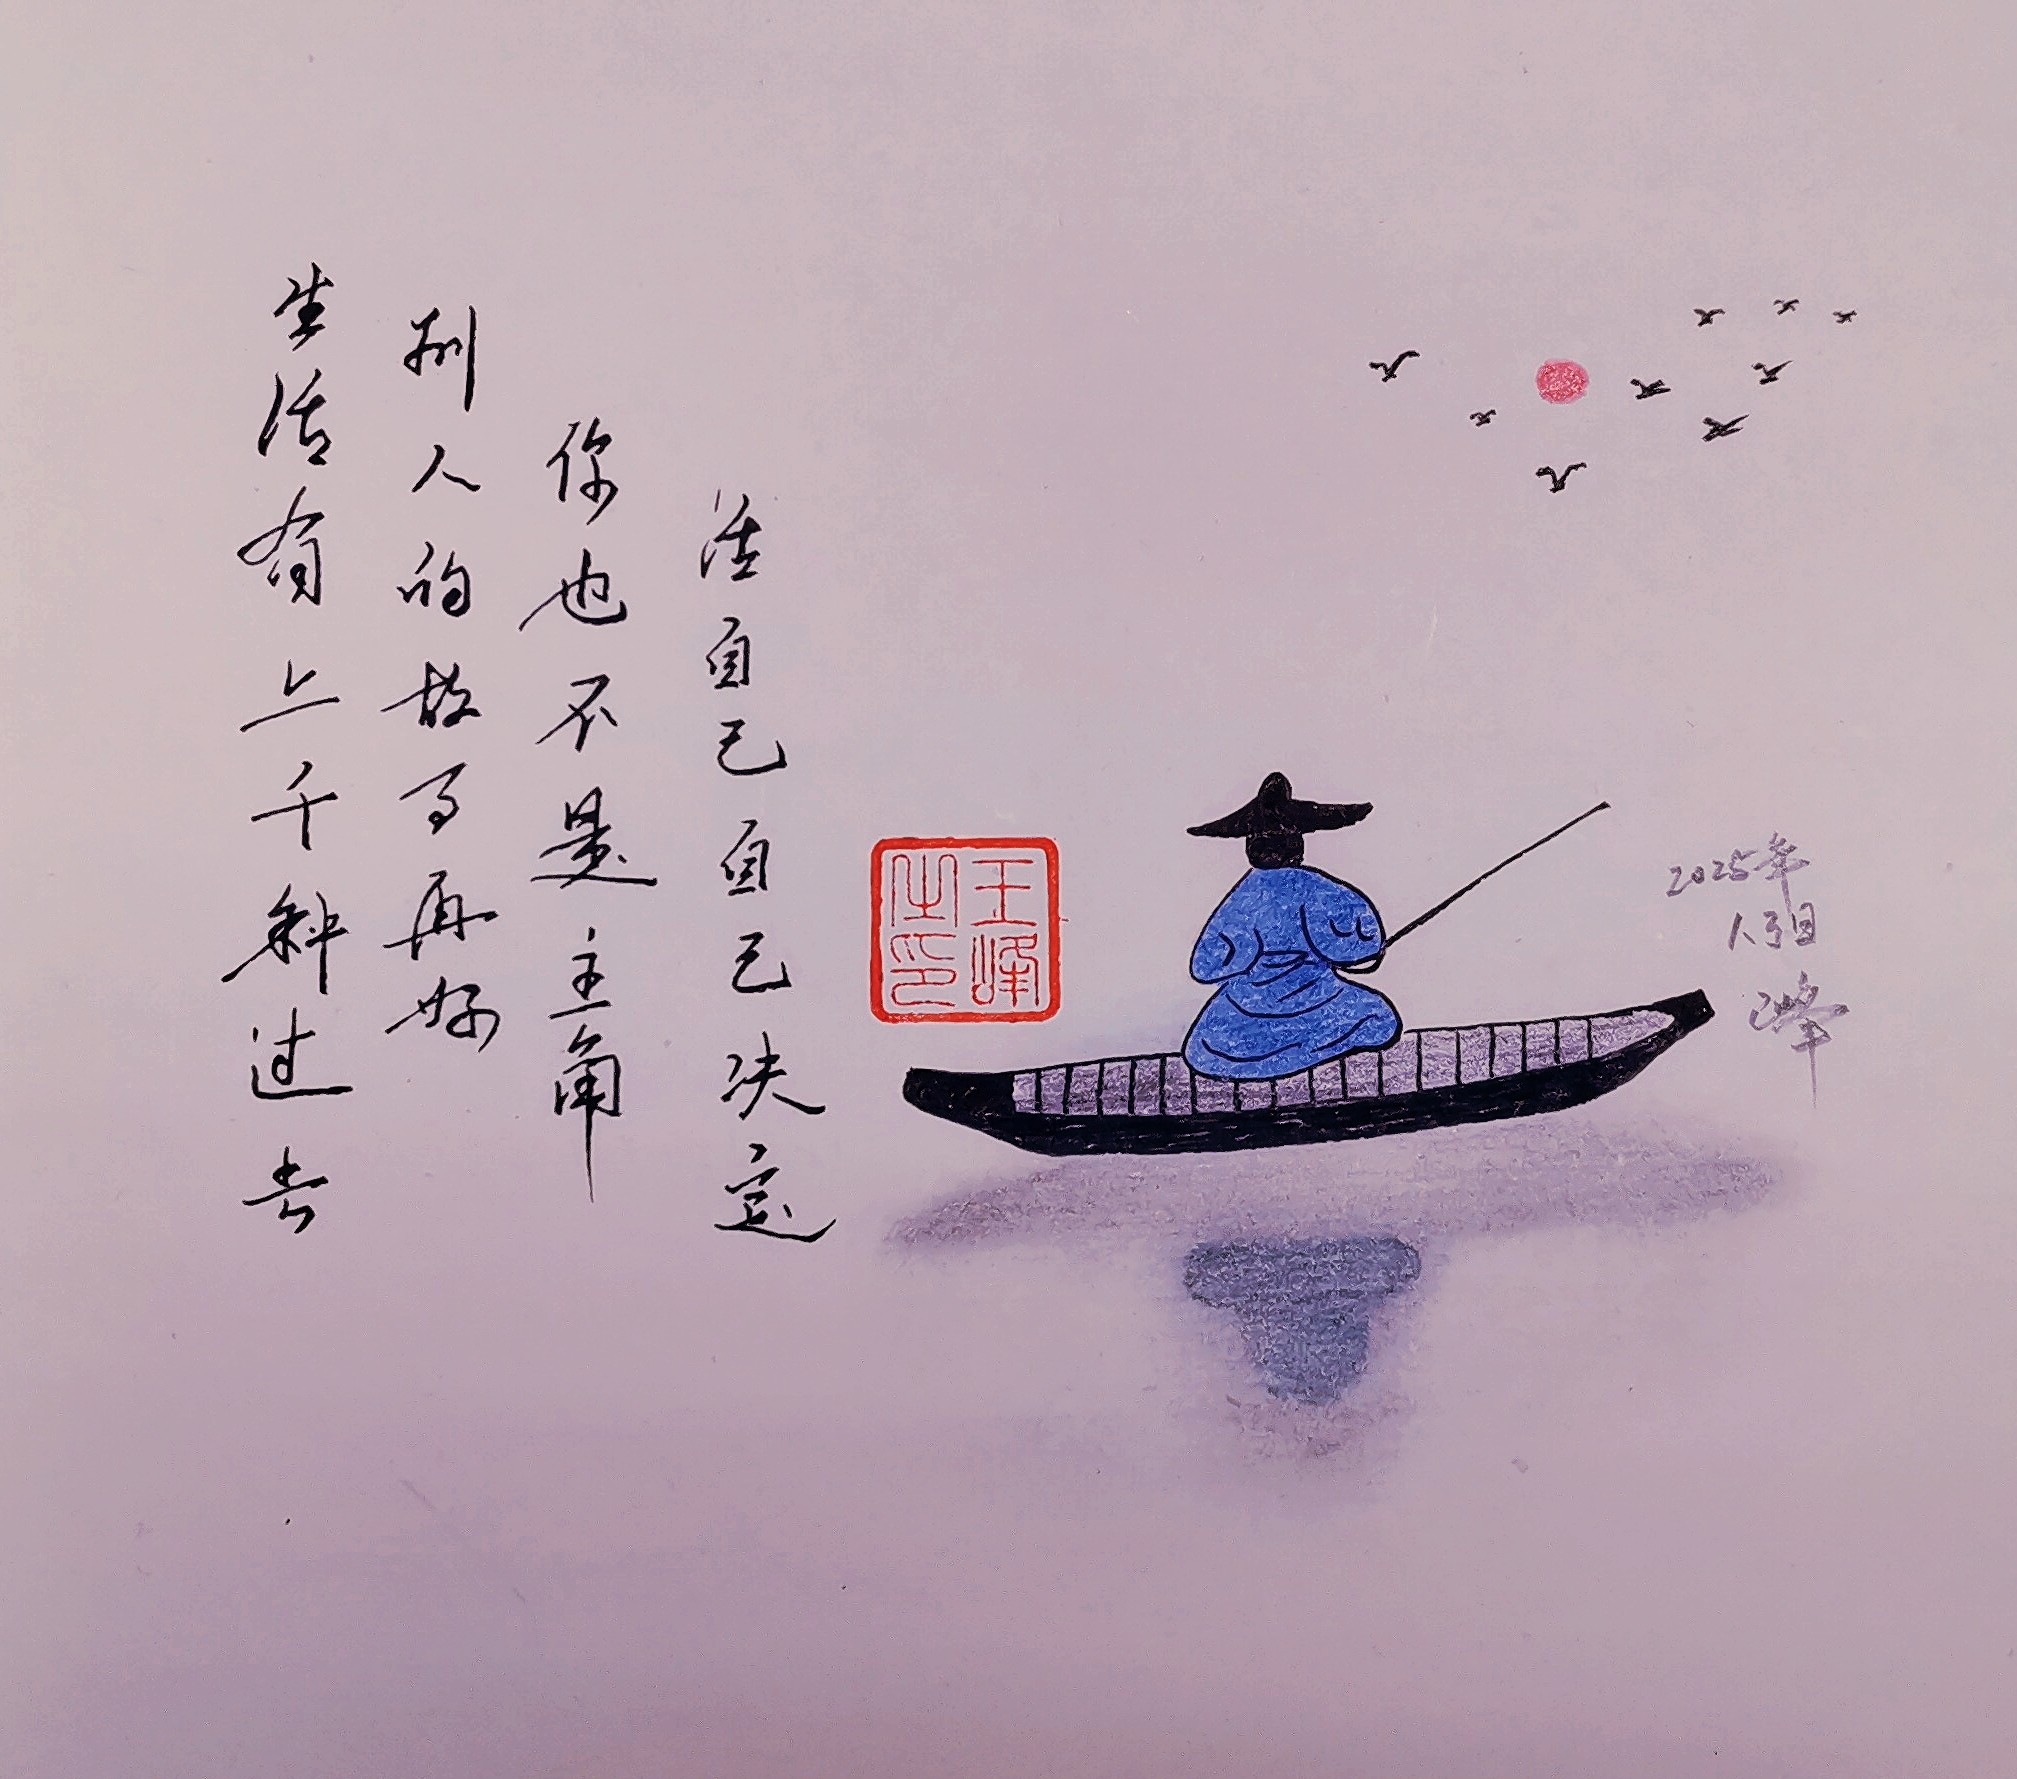 生活有上千种过去
别人的故事再好
你也不是主角
活自己自己决定
王峰之印
2025年
峰